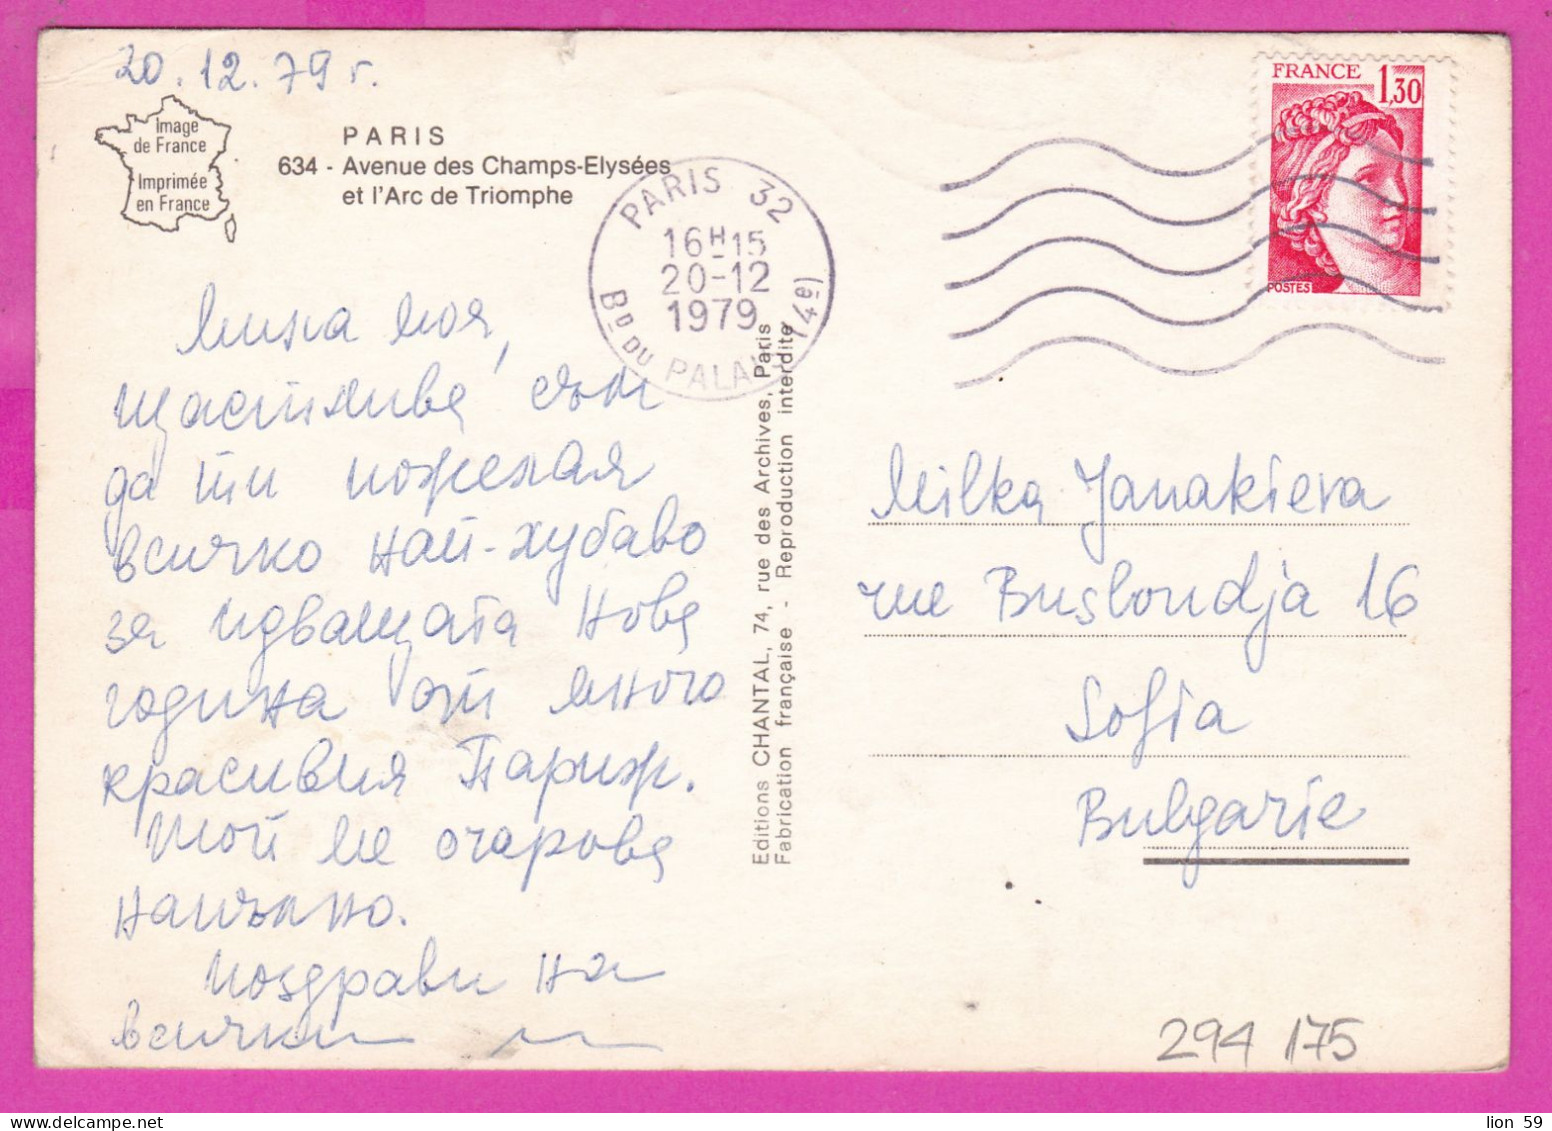 20.12.79 г.
Image
de France
Imprimée
en France
PARIS
634 - Avenue des Champs-Elysées
et l'Arc de Triomphe
PARIS 32
16H15
20-12
1979
BD DU PALAIS (4e)
FRANCE 1,30
POSTES
Милка моя,
щастлива съм
да ти пожелая
всичко най-хубаво
за идващата Нова
година от много
красивия Париж.
Той ме очарова
напълно.
Поздрави на
всички
Editions CHANTAL, 74, rue des Archives, Paris
Fabrication française - Reproduction interdite
Milka Janakieva
rue Busloudja 16
Sofia
Bulgarie
294 175
lion 59